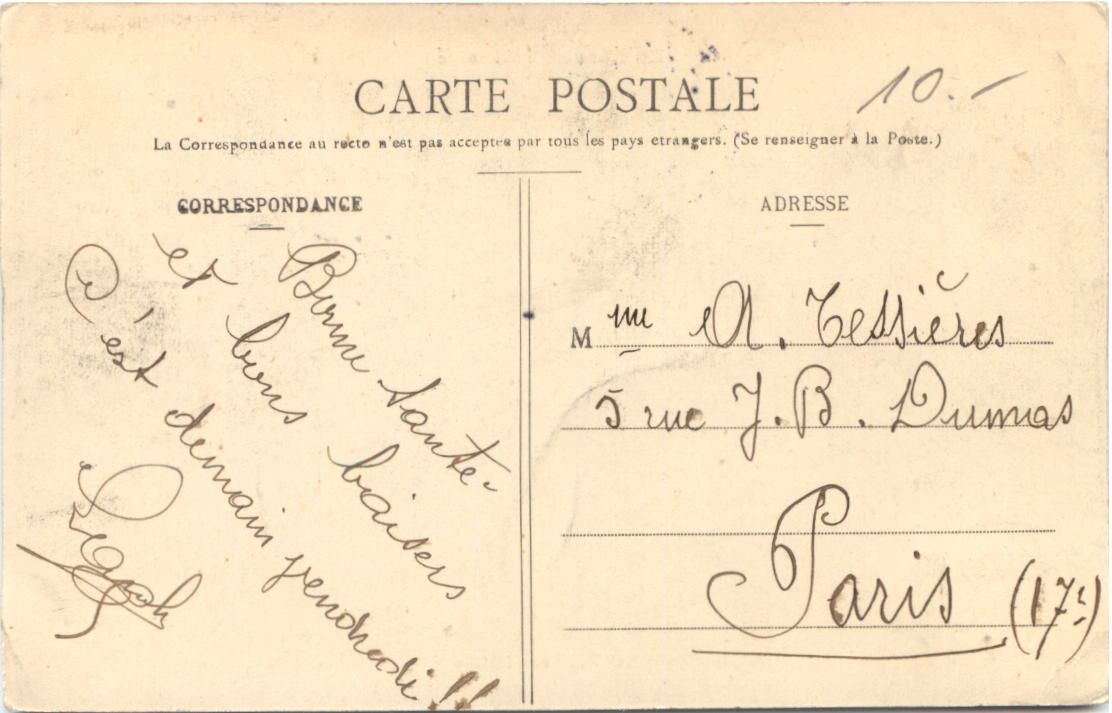 CARTE POSTALE
10.-
La Correspondance au recto n'est pas acceptée par tous les pays etrangers. (Se renseigner à la Poste.)
CORRESPONDANCE
Bonne Santé
et bons baisers
C'est demain vendredi!!
ADRESSE
Mme A. Tessières
5 rue J. B. Dumas
Paris (17e)